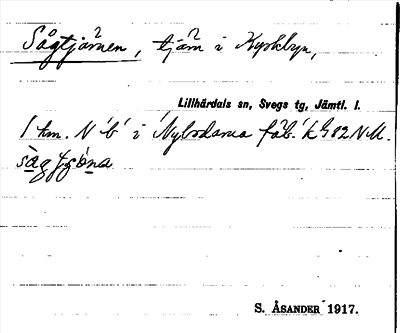 Sågtjärnen, tjärn i Kyrkbyn,
Lillhärdals sn, Svegs tg, Jämtl. l.
1 km. N 'b' i Nybodarna fäb.
sågtjöna
S. ÅSANDER 1917.